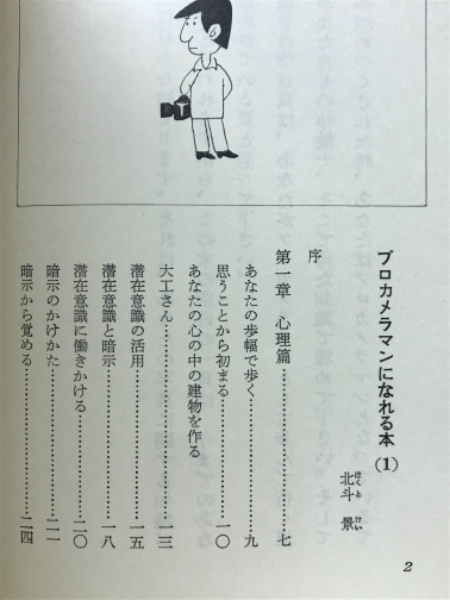 プロカメラマンになれる本(1)
北斗 景
ほくと けい
序
第一章 心理篇…………七
あなたの歩幅で歩く…………九
思うことから初まる…………一〇
あなたの心の中の建物を作る
大工さん…………一三
潜在意識の活用…………一五
潜在意識と暗示…………一八
潜在意識に働きかける…………二〇
暗示のかけかた…………二一
暗示から覚める…………二四
2